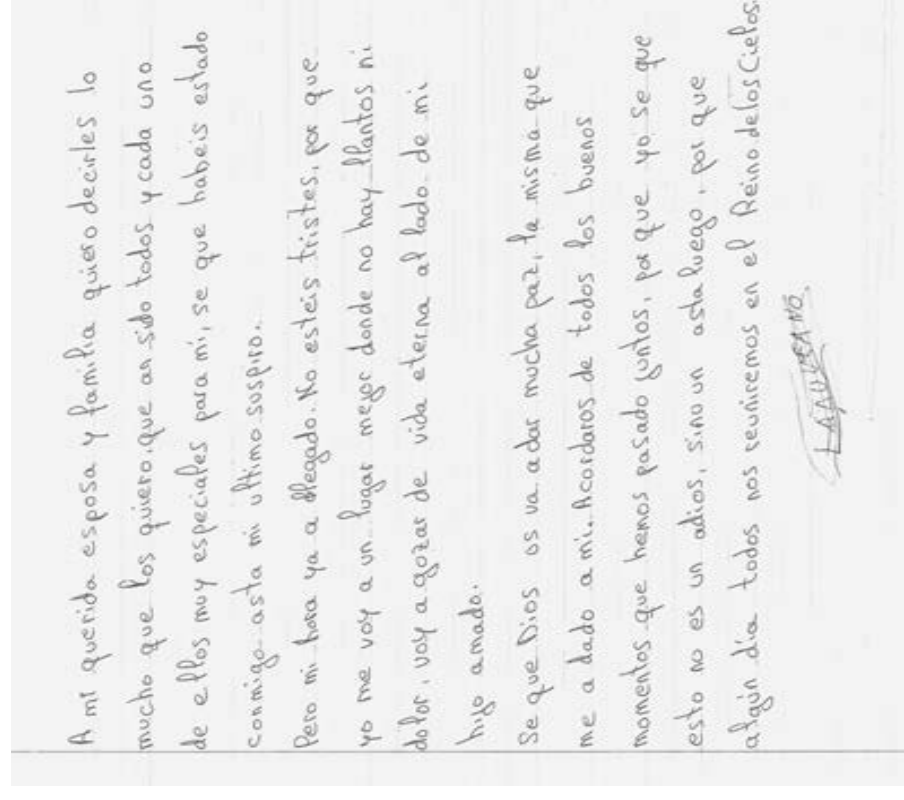 A mi querida esposa y familia quiero decirles lo
mucho que los quiero, que an sido todos y cada uno
de ellos muy especiales para mí, se que habeis estado
conmigo asta mi ultimo suspiro.
Pero mi hora ya a llegado. No esteis tristes, por que
yo me voy a un lugar mejor donde no hay llantos ni
dolor, voy a gozar de vida eterna al lado de mi
hijo amado.
Se que Dios os va a dar mucha paz, la misma que
me a dado a mi. Acordaros de todos los buenos
momentos que hemos pasado juntos, por que yo se que
esto no es un adios, sino un asta luego, por que
algún día todos nos reuniremos en el Reino de los Cielos.